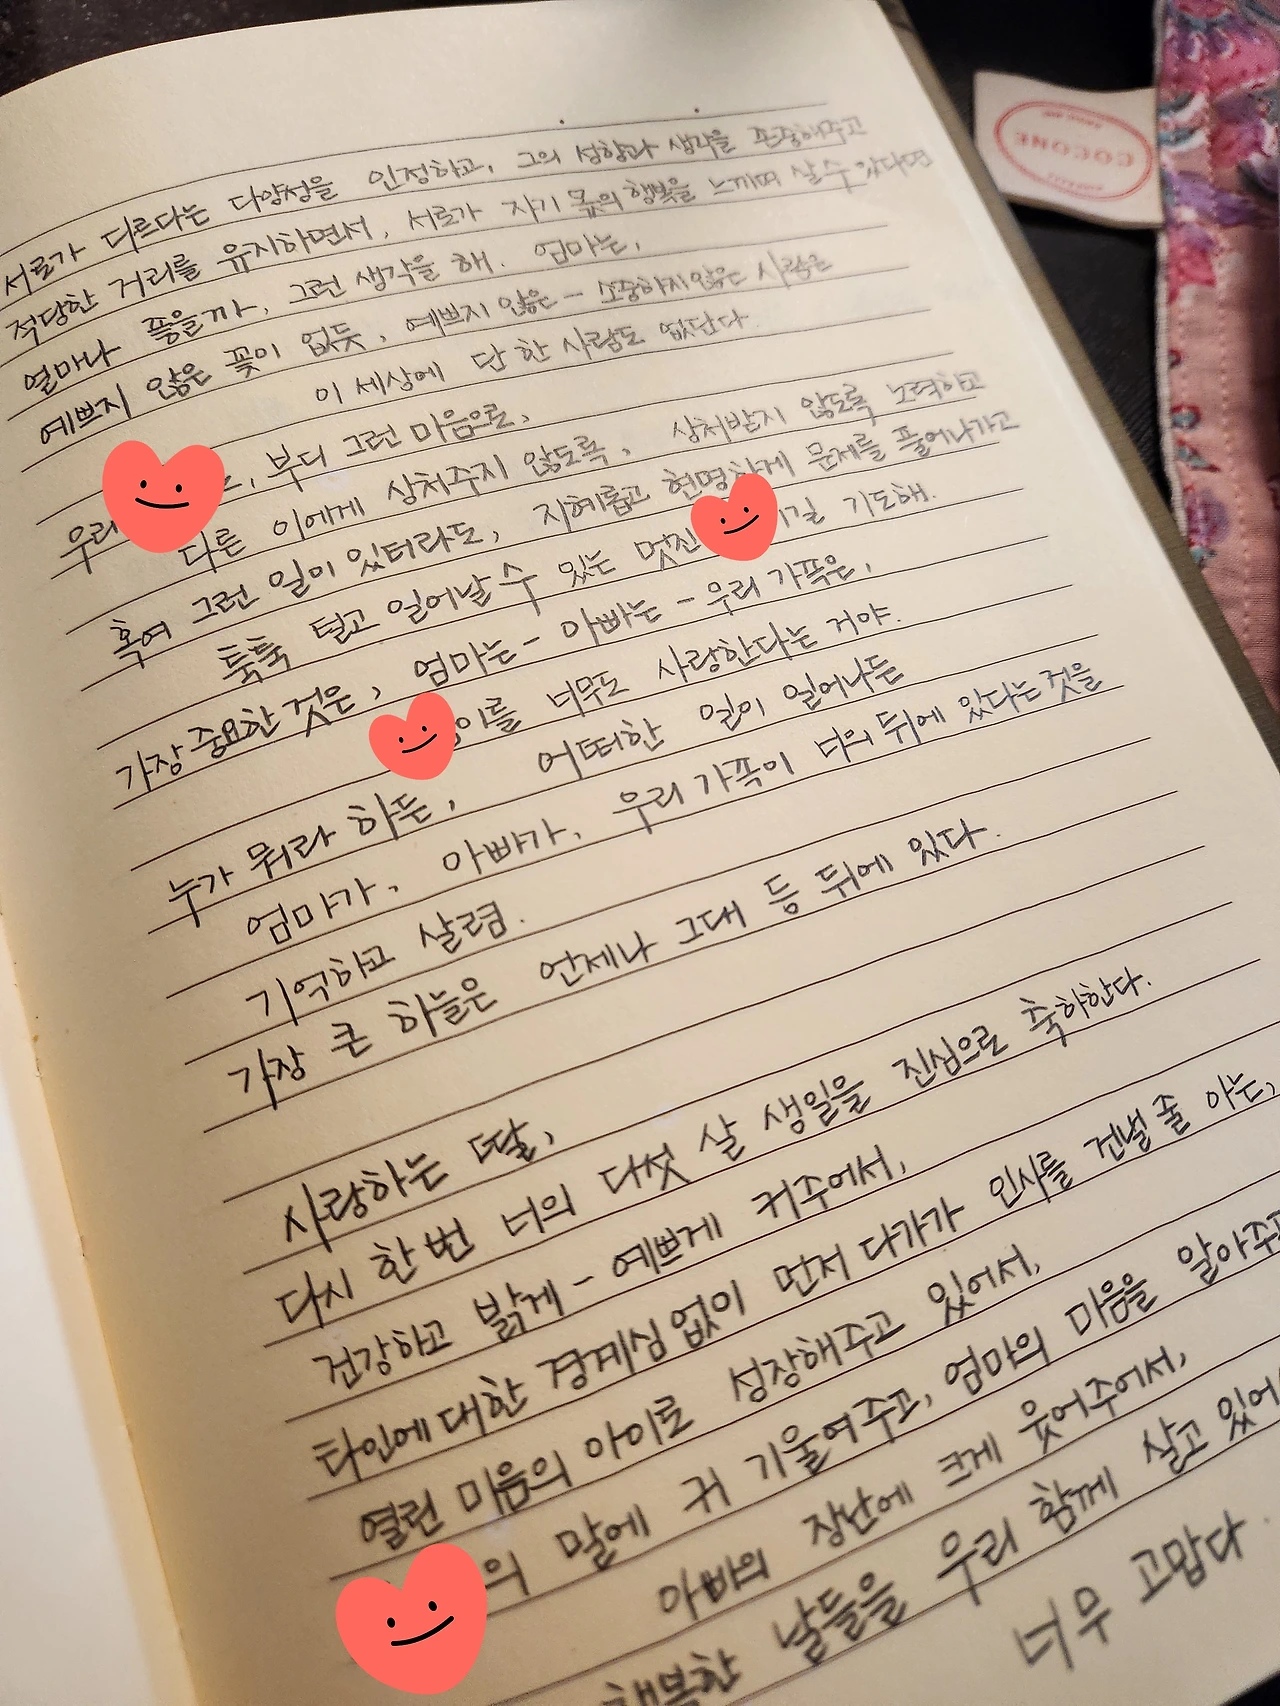 서로가 다르다는 다양성을 인정하고, 그의 성향과 생각을 존중해주고
적당한 거리를 유지하면서, 서로가 자기 몫의 행복을 느끼며 살 수 있다면
얼마나 좋을까, 그런 생각을 해. 엄마는,
예쁘지 않은 꽃이 없듯, 예쁘지 않은 - 소중하지 않은 사람은
이 세상에 단 한 사람도 없단다.
우리 , 부디 그런 마음으로,
다른 이에게 상처주지 않도록, 상처받지 않도록 노력하고
혹여 그런 일이 있더라도, 지혜롭고 현명하게 문제를 풀어나가고
툭툭 털고 일어날 수 있는 멋진 길 기도해.
가장 중요한 것은, 엄마는 - 아빠는 - 우리 가족은,
이를 너무도 사랑한다는 거야.
누가 뭐라 하든, 어떠한 일이 일어나든
엄마가, 아빠가, 우리 가족이 너의 뒤에 있다는 것을
기억하고 살렴.
가장 큰 하늘은 언제나 그대 등 뒤에 있다.
사랑하는 딸,
다시 한 번 너의 다섯 살 생일을 진심으로 축하한다.
건강하고 밝게 - 예쁘게 커주어서,
타인에 대한 경계심 없이 먼저 다가가 인사를 건넬 줄 아는,
열린 마음의 아이로 성장해주고 있어서,
의 말에 귀 기울여주고, 엄마의 마음을 알아주
아빠의 장난에 크게 웃어주어서,
행복한 날들을 우리 함께 살고 있어
너무 고맙다.
COCONE